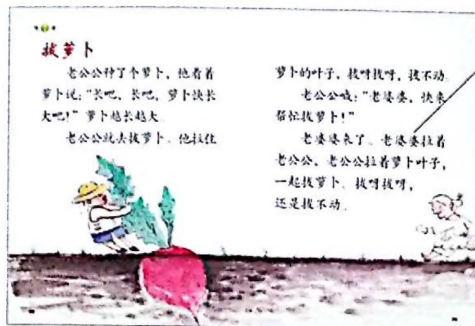 拔萝卜
老公公种了个萝卜，他看着
萝卜说：“长吧，长吧，萝卜快长
大吧！”萝卜越长越大。
老公公就去拔萝卜。他拉住
萝卜的叶子，拔呀拔呀，拔不动。
老公公喊：“老婆婆，快来
帮忙拔萝卜！”
老婆婆来了。老婆婆拉着
老公公，老公公拉着萝卜叶子，
一起拔萝卜。拔呀拔呀，
还是拔不动。